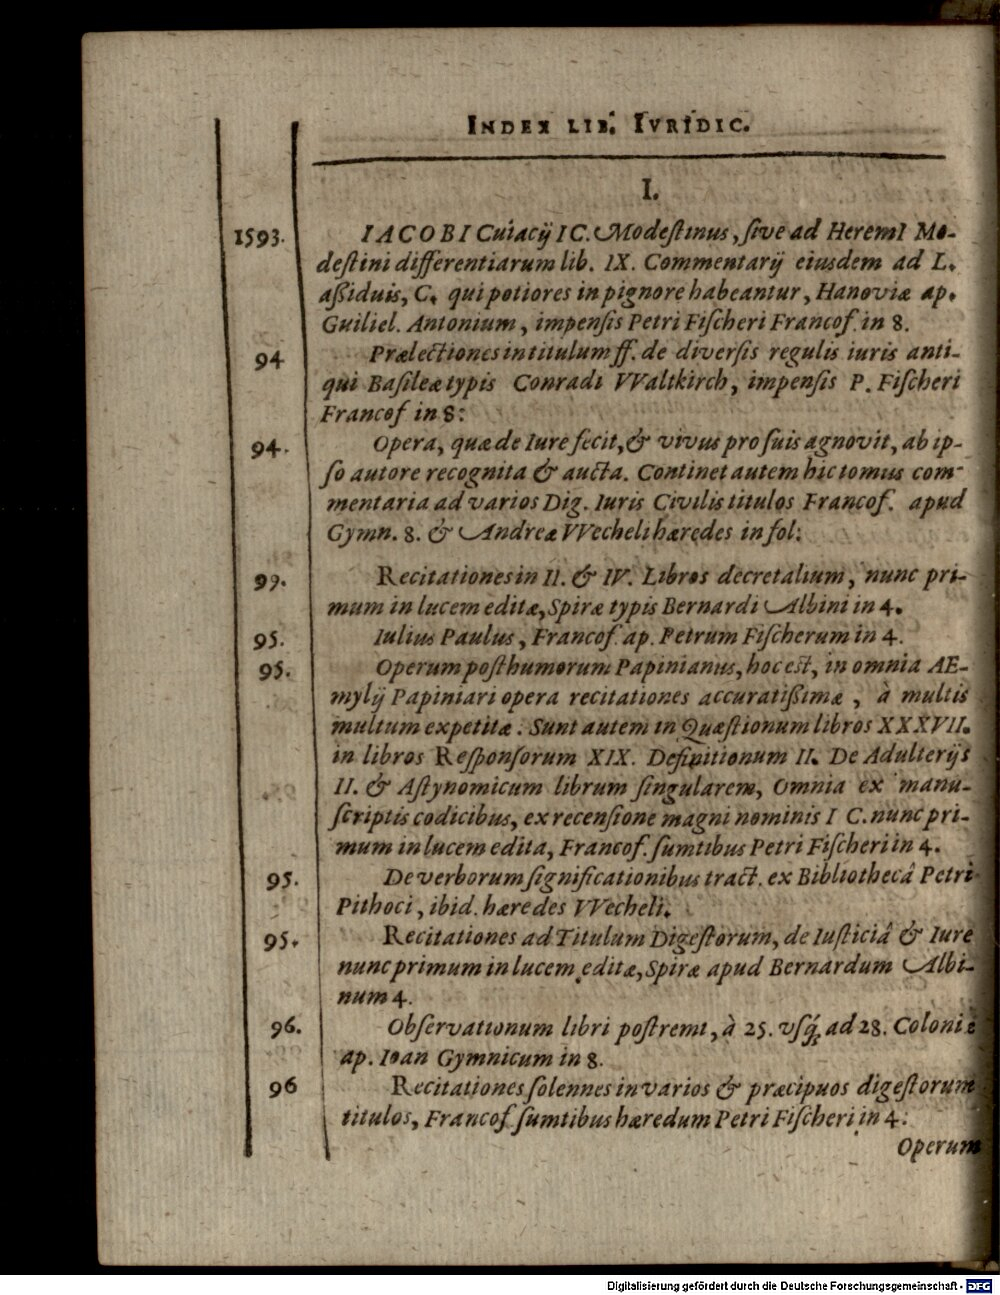 INDEX LIB. IVRIDIC.
I.
1593. IACOBI Cuiacij IC. Modestinus, sive ad Heremi Mo-
destini differentiarum lib. IX. Commentarij eiusdem ad L.
aßiduis, C. qui potiores in pignore habeantur, Hanoviæ ap.
Guiliel. Antonium, impensis Petri Fischeri Francof. in 8.
94 Prælectiones in titulum ff. de diversis regulis iuris anti-
qui Basileæ typis Conradi VValtkirch, impensis P. Fischeri
Francof in 8:
94. Opera, quæ de Iure fecit, & vivus pro suis agnovit, ab ip-
so autore recognita & aucta. Continet autem hic tomus com-
mentaria ad varios Dig. Iuris Civilis titulos Francof. apud
Gymn. 8. & Andreæ VVecheli hæredes in fol:
99. Recitationes in II. & IV. Libros decretalium, nunc pri-
mum in lucem editæ, Spiræ typis Bernardi Albini in 4.
95. Iulius Paulus, Francof. ap. Petrum Fischerum in 4.
95. Operum posthumorum Papinianus, hoc est, in omnia AE-
mylij Papiniari opera recitationes accuratißimæ, à multis
multum expetitæ. Sunt autem in Quæstionum libros XXXVII.
in libros Responsorum XIX. Definitionum II. De Adulterijs
II. & Astynomicum librum singularem, Omnia ex manu-
scriptis codicibus, ex recensione magni nominis I C. nunc pri-
mum in lucem edita, Francof. sumtibus Petri Fischeri in 4.
95. De verborum significationibus tract. ex Bibliothecâ Petri
Pithoci, ibid. hæredes VVecheli.
95. Recitationes ad Titulum Digestorum, de Iusticiâ & Iure
nunc primum in lucem editæ, Spiræ apud Bernardum Albi-
num 4.
96. Observationum libri postremi, à 25. vsq́; ad 28. Coloniæ
ap. Ioan Gymnicum in 8.
96 Recitationes solennes in varios & præcipuos digestorum
titulos, Francof. sumtibus hæredum Petri Fischeri in 4.
Operum
Digitalisierung gefördert durch die Deutsche Forschungsgemeinschaft - DFG